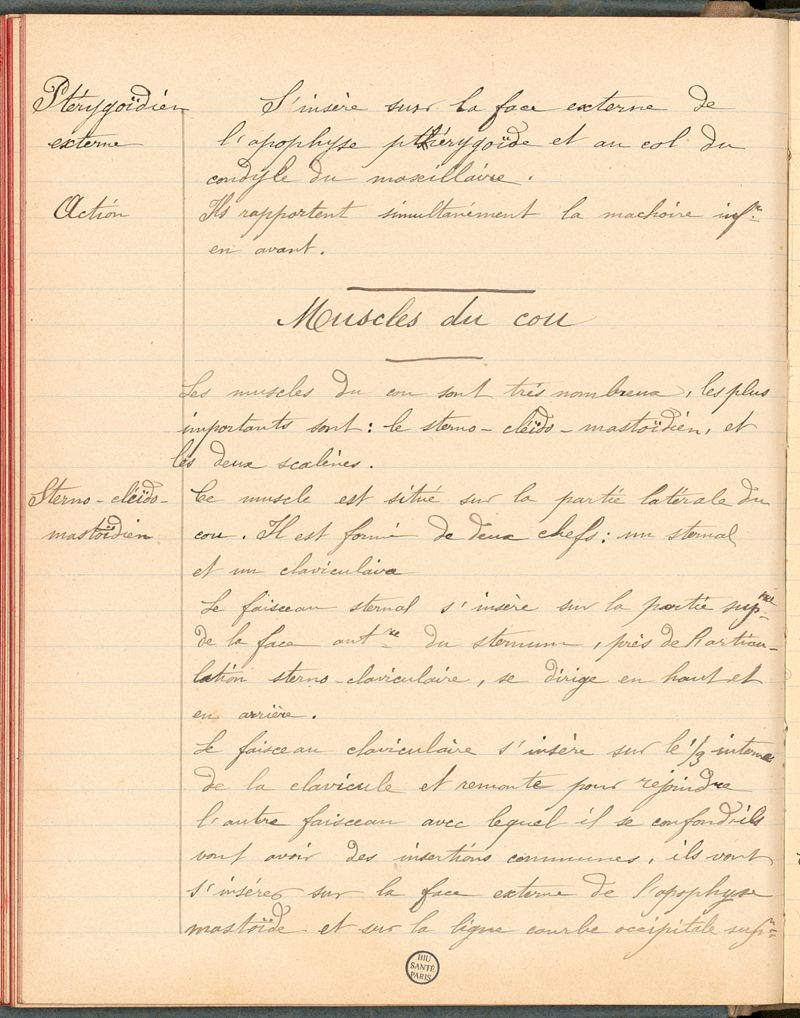 Ptérygoïdien
externe
S'insère sur la face externe de
l'apophyse ptérygoïde et au col du
condyle du maxillaire.
Action
Ils rapportent simultanément la machoire infre
en avant.
Muscles du cou
Les muscles du cou sont très nombreux, les plus
importants sont : le sterno-cléïdo-mastoïdien, et
les deux scalènes.
Sterno-cléïdo-
mastoïdien
Ce muscle est situé sur la partie latérale du
cou. Il est formé de deux chefs : un sternal
et un claviculaire
Le faisceau sternal s'insère sur la partie supre
de la face antre du sternum, près de l'articu-
lation sterno-claviculaire, se dirige en haut et
en arrière.
Le faisceau claviculaire s'insère sur le 1/3 interne
de la clavicule et remonte pour rejoindre
l'autre faisceau avec lequel il se confond, ils
vont avoir des insertions communes, ils vont
s'insérer sur la face externe de l'apophyse
mastoïde et sur la ligne courbe occipitale supre
BIU
SANTÉ
PARIS